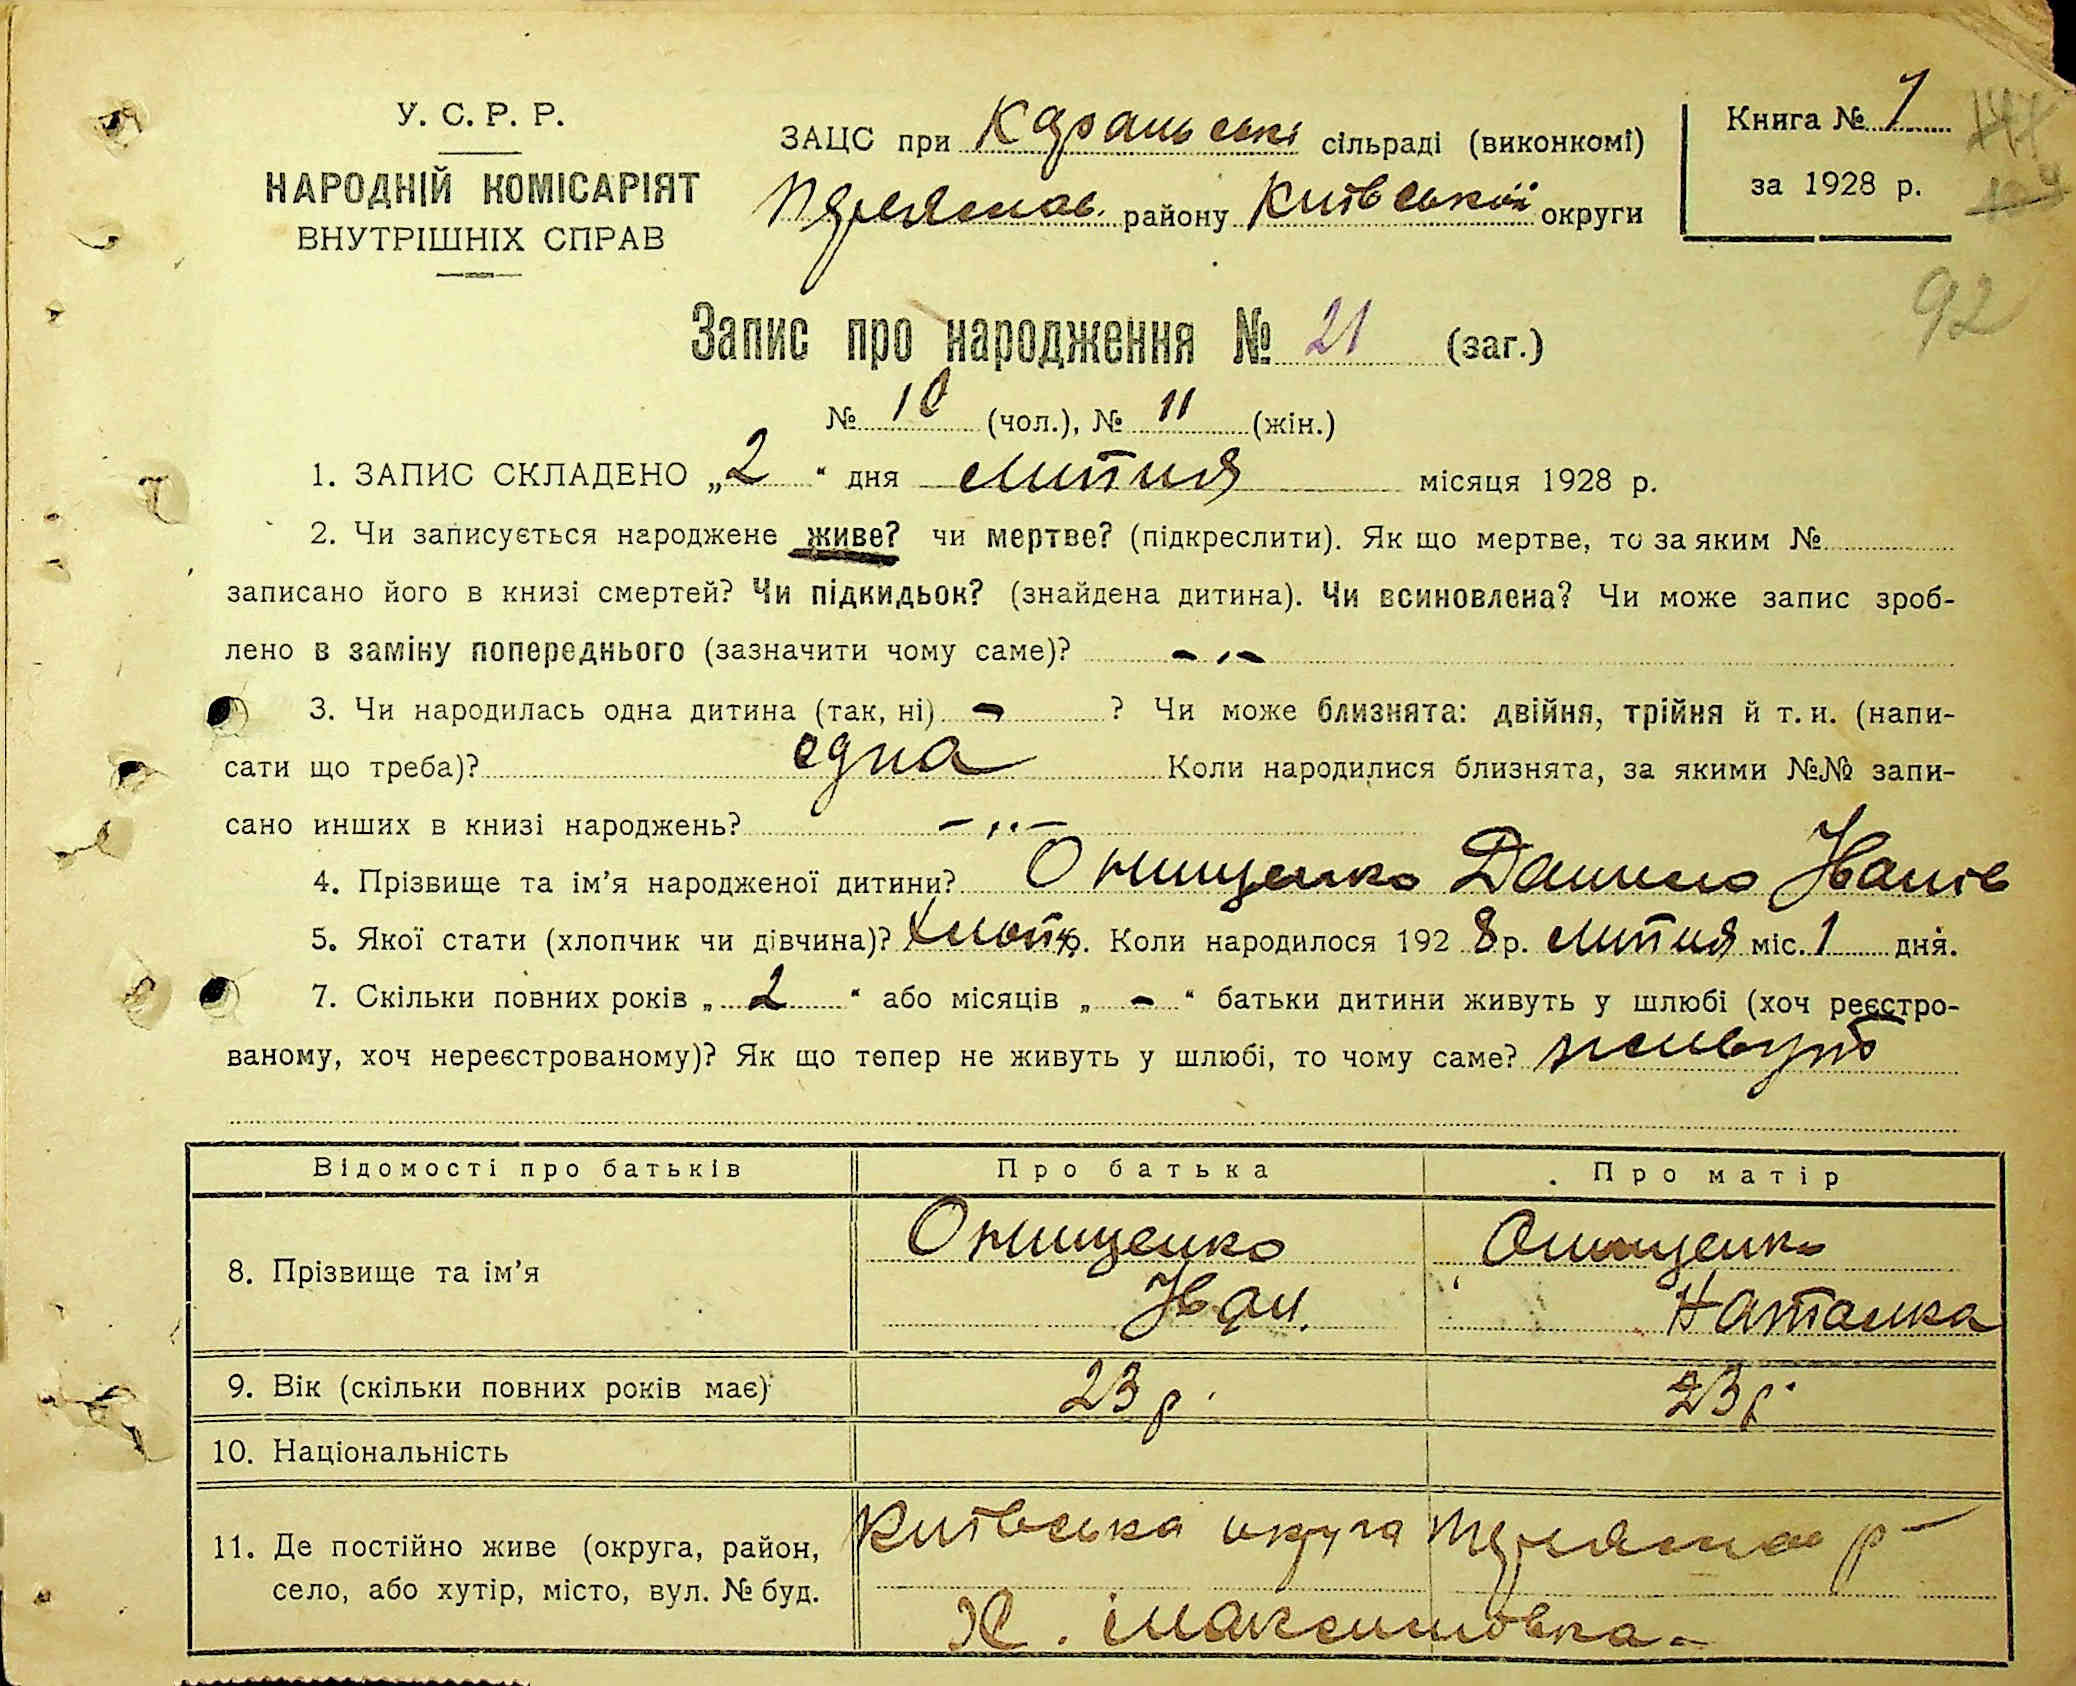 У. С. Р. Р.
НАРОДНІЙ КОМІСАРІЯТ
ВНУТРІШНІХ СПРАВ
ЗАЦС при Караньські сільраді (виконкомі)
Переяслав. району Київської округи
Книга № 1
за 1928 р.
92
Запис про народження № 21 (заг.)
№ 10 (чол.), № 11 (жін.)
1. ЗАПИС СКЛАДЕНО „2“ дня липня місяця 1928 р.
2. Чи записується народжене живе? чи мертве? (підкреслити). Як що мертве, то за яким №
записано його в книзі смертей? Чи підкидьок? (знайдена дитина). Чи всиновлена? Чи може запис зроб-
лено в заміну попереднього (зазначити чому саме)? - „ -
3. Чи народилась одна дитина (так, ні) - ? Чи може близнята: двійня, трійня й т. и. (напи-
сати що треба)? една Коли народилися близнята, за якими №№ запи-
сано инших в книзі народжень? - „ -
4. Прізвище та ім’я народженої дитини? Онищенко Данило Іванів
5. Якої стати (хлопчик чи дівчина)? хлопч. Коли народилося 1928 р. липня міс. 1 дня.
7. Скільки повних років „2“ або місяців „-“ батьки дитини живуть у шлюбі (хоч реєстро-
ваному, хоч нереєстрованому)? Як що тепер не живуть у шлюбі, то чому саме? живуть
Відомості про батьків Про батька Про матір
8. Прізвище та ім’я Онищенко Іван. Онищенко Наталка
9. Вік (скільки повних років має) 23 р. 23 р.
10. Національність
11. Де постійно живе (округа, район, Київська округа Переяслав р-
село, або хутір, місто, вул. № буд. Х. Максимовка-